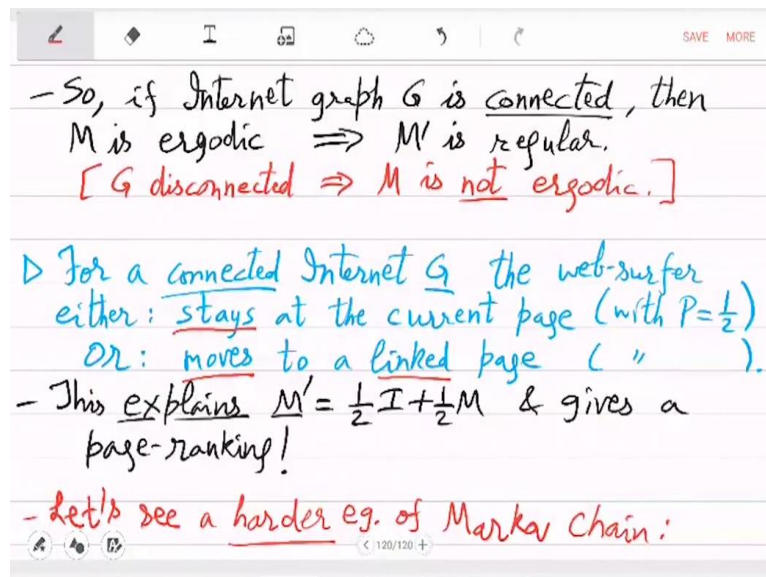 SAVE MORE
- So, if Internet graph G is connected, then
M is ergodic ⟹ M' is regular.
[ G disconnected ⇒ M is not ergodic. ]
▷ For a connected Internet G the web-surfer
either : stays at the current page (with P=1/2)
Or : moves to a linked page ( " ).
- This explains M' = 1/2 I + 1/2 M & gives a
page-ranking!
- Let's see a harder eg. of Markov Chain :
< 120/120 +